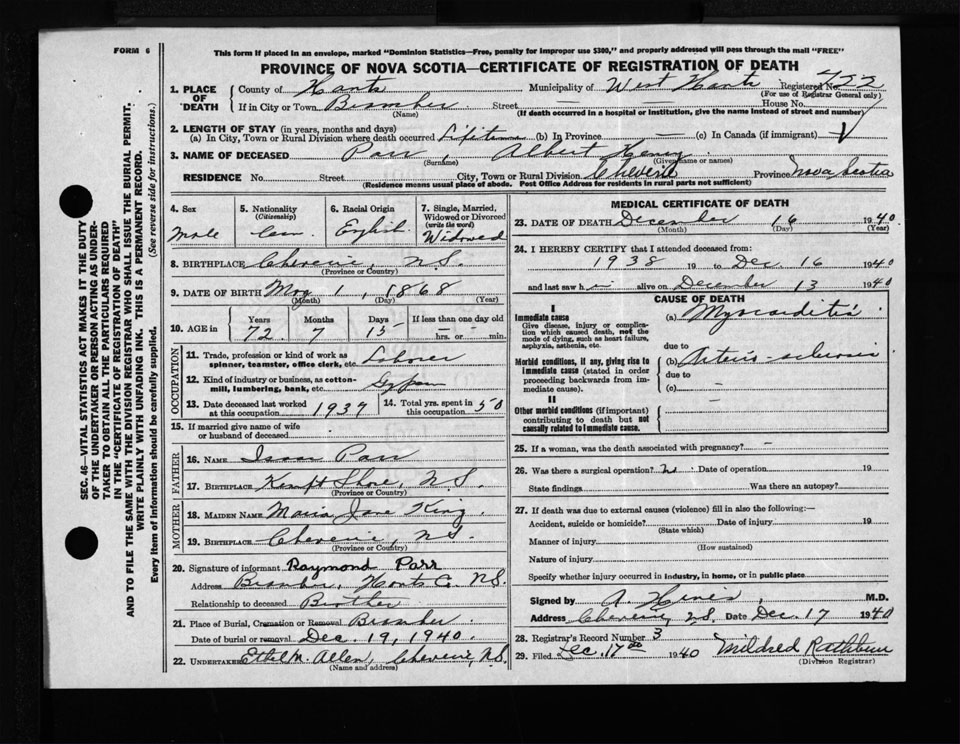 FORM 6
This form if placed in an envelope, marked "Dominion Statistics—Free, penalty for improper use $300," and properly addressed will pass through the mail "FREE"
PROVINCE OF NOVA SCOTIA—CERTIFICATE OF REGISTRATION OF DEATH
SEC. 46—VITAL STATISTICS ACT MAKES IT THE DUTY
OF THE UNDERTAKER OR PERSON ACTING AS UNDER-
TAKER TO OBTAIN ALL THE PARTICULARS REQUIRED
IN THE "CERTIFICATE OF REGISTRATION OF DEATH"
AND TO FILE THE SAME WITH THE DIVISION REGISTRAR WHO SHALL ISSUE THE BURIAL PERMIT.
WRITE PLAINLY WITH UNFADING INK. THIS IS A PERMANENT RECORD.
Every item of information should be carefully supplied. (See reverse side for instructions.)
1. PLACE OF DEATH
County of Hants Municipality of West Hants Registered No. 722
(For use of Registrar General only)
If in City or Town Bramber Street — House No. —
(Name) (If death occurred in a hospital or institution, give the name instead of street and number)
2. LENGTH OF STAY (in years, months and days)
(a) In City, Town or Rural Division where death occurred Lifetime (b) In Province — (c) In Canada (if immigrant)
3. NAME OF DECEASED Parr, Albert Henry
(Surname) (Given name or names)
RESIDENCE No. Street City, Town or Rural Division Cheverie Province Nova Scotia
(Residence means usual place of abode. Post Office Address for residents in rural parts not sufficient)
4. Sex Male
5. Nationality (Citizenship) Can
6. Racial Origin English
7. Single, Married, Widowed or Divorced (write the word) Widowed
8. BIRTHPLACE Cheverie, N.S.
(Province or Country)
9. DATE OF BIRTH May 1, 1868
(Month) (Day) (Year)
10. AGE in Years 72 Months 7 Days 15 If less than one day old hrs. or min.
OCCUPATION
11. Trade, profession or kind of work as spinner, teamster, office clerk, etc. Laborer
12. Kind of industry or business, as cotton-mill, lumbering, bank, etc. Gypsum
13. Date deceased last worked at this occupation 1939
14. Total yrs. spent in this occupation 50
15. If married give name of wife or husband of deceased
FATHER
16. NAME Isaac Parr
17. BIRTHPLACE Kempt Shore, N.S.
(Province or Country)
MOTHER
18. MAIDEN NAME Maria Jane King
19. BIRTHPLACE Cheverie, N.S.
(Province or Country)
20. Signature of informant Raymond Parr
Address Bramber, Hants Co. N.S.
Relationship to deceased Brother
21. Place of Burial, Cremation or Removal Bramber
Date of burial or removal Dec. 19, 1940.
22. UNDERTAKER Ethel M. Allen, Cheverie, N.S.
(Name and address)
MEDICAL CERTIFICATE OF DEATH
23. DATE OF DEATH December 16 1940
(Month) (Day) (Year)
24. I HEREBY CERTIFY that I attended deceased from:
1938 19 to Dec. 16 1940
and last saw him alive on December 13 1940
CAUSE OF DEATH
I
Immediate cause (a) Myocarditis
Give disease, injury or complication which caused death, not the mode of dying, such as heart failure, asphyxia, asthenia, etc.
due to
Morbid conditions, if any, giving rise to immediate cause (stated in order proceeding backwards from immediate cause).
(b) Arterio-sclerosis
due to
(c) —
II
Other morbid conditions (if important) contributing to death but not causally related to immediate cause.
25. If a woman, was the death associated with pregnancy? —
26. Was there a surgical operation? No Date of operation 19
State findings Was there an autopsy?
27. If death was due to external causes (violence) fill in also the following:—
Accident, suicide or homicide? Date of injury 19
(State which)
Manner of injury
(How sustained)
Nature of injury
Specify whether injury occurred in industry, in home, or in public place
Signed by A. Hines, M.D.
Address Cheverie, N.S. Date Dec. 17 1940
28. Registrar's Record Number 3
29. Filed Dec. 17th 1940 Mildred Rathbun
(Division Registrar)